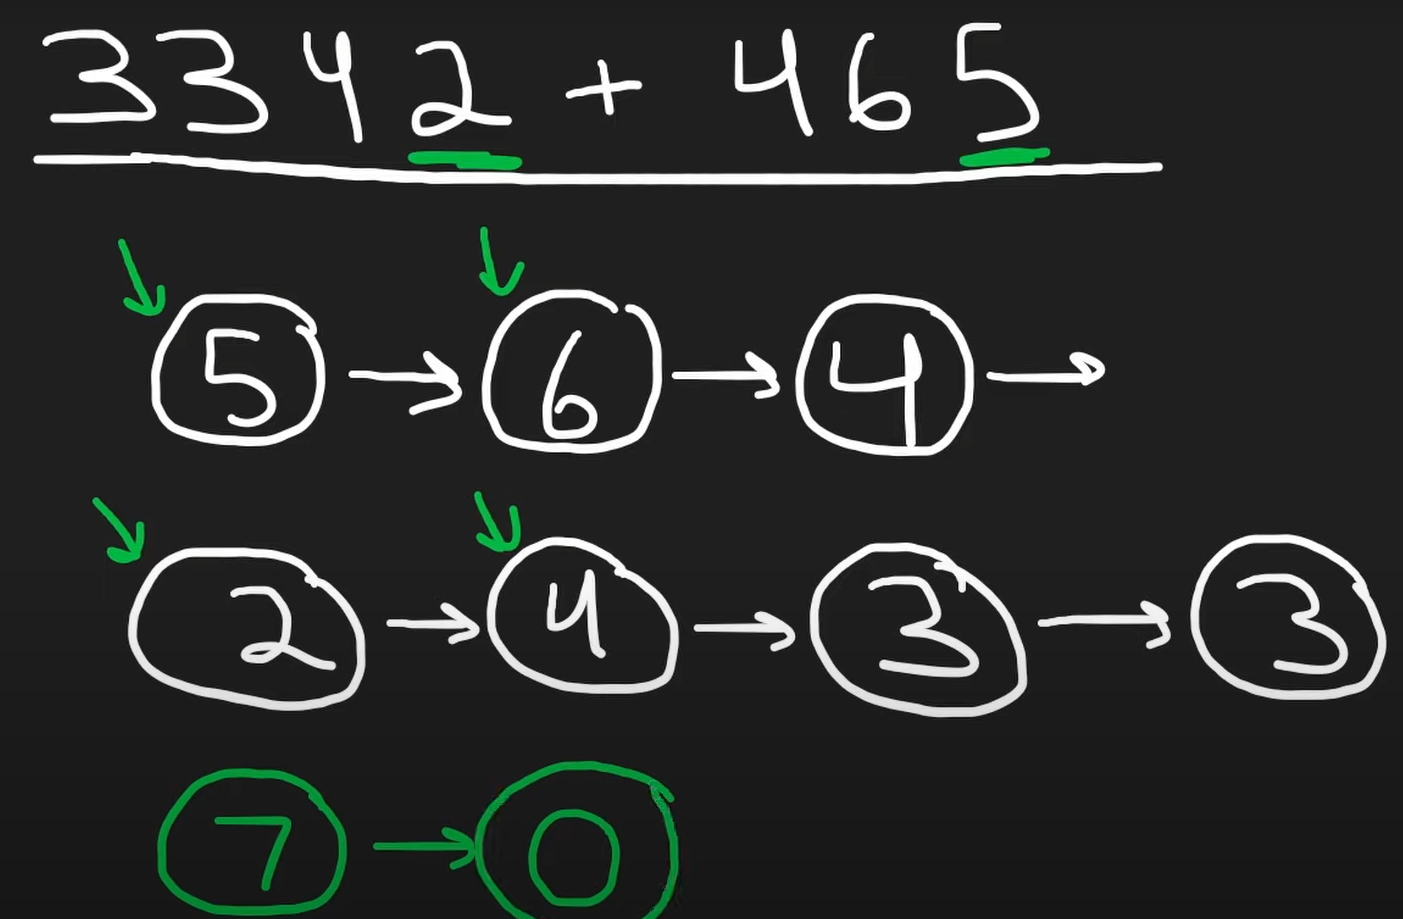 3342 + 465
5 → 6 → 4 →
2 → 4 → 3 → 3
7 → 0